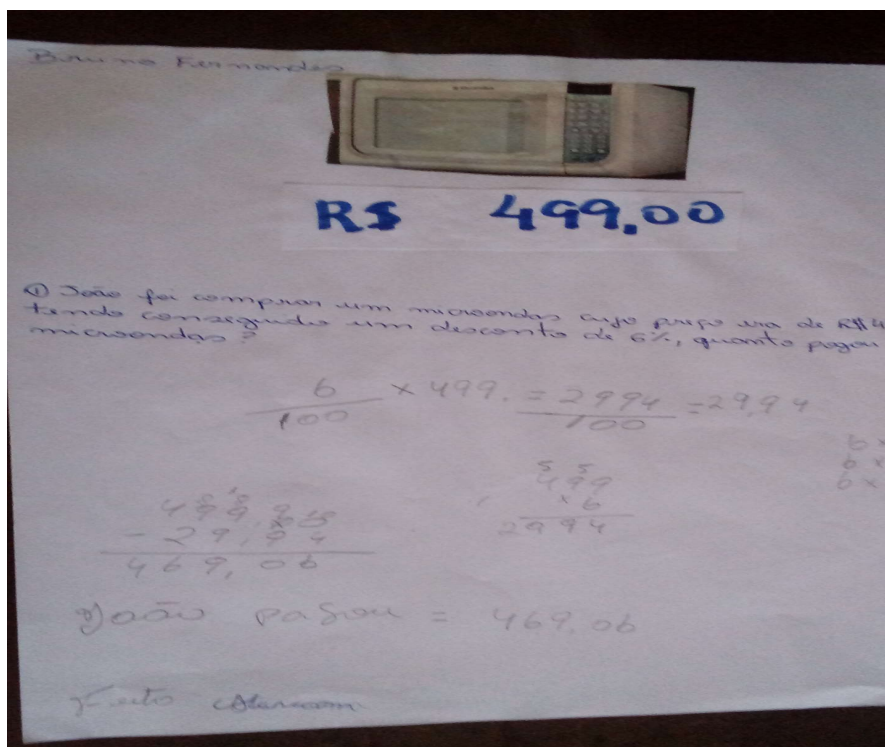 Bruno Fernandes
R$ 499,00
① João foi comprar um microondas cujo preço era de R$ 4
tendo conseguido um desconto de 6%, quanto pagou
microondas?
6/100 × 499. = 2994/100 = 29,94
6 ×
6 ×
6 ×
5 5
499
× 6
2994
- 29,94
469,06
João pagou = 469,06